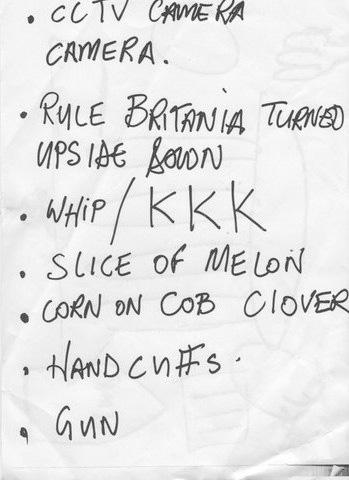 • CCTV CAMERA
CAMERA.
• RULE BRITANIA TURNED
UPSIDE DOWN
• WHIP / KKK
• SLICE OF MELON
• CORN ON COB CLOVER
• HANDCUFFS.
• GUN